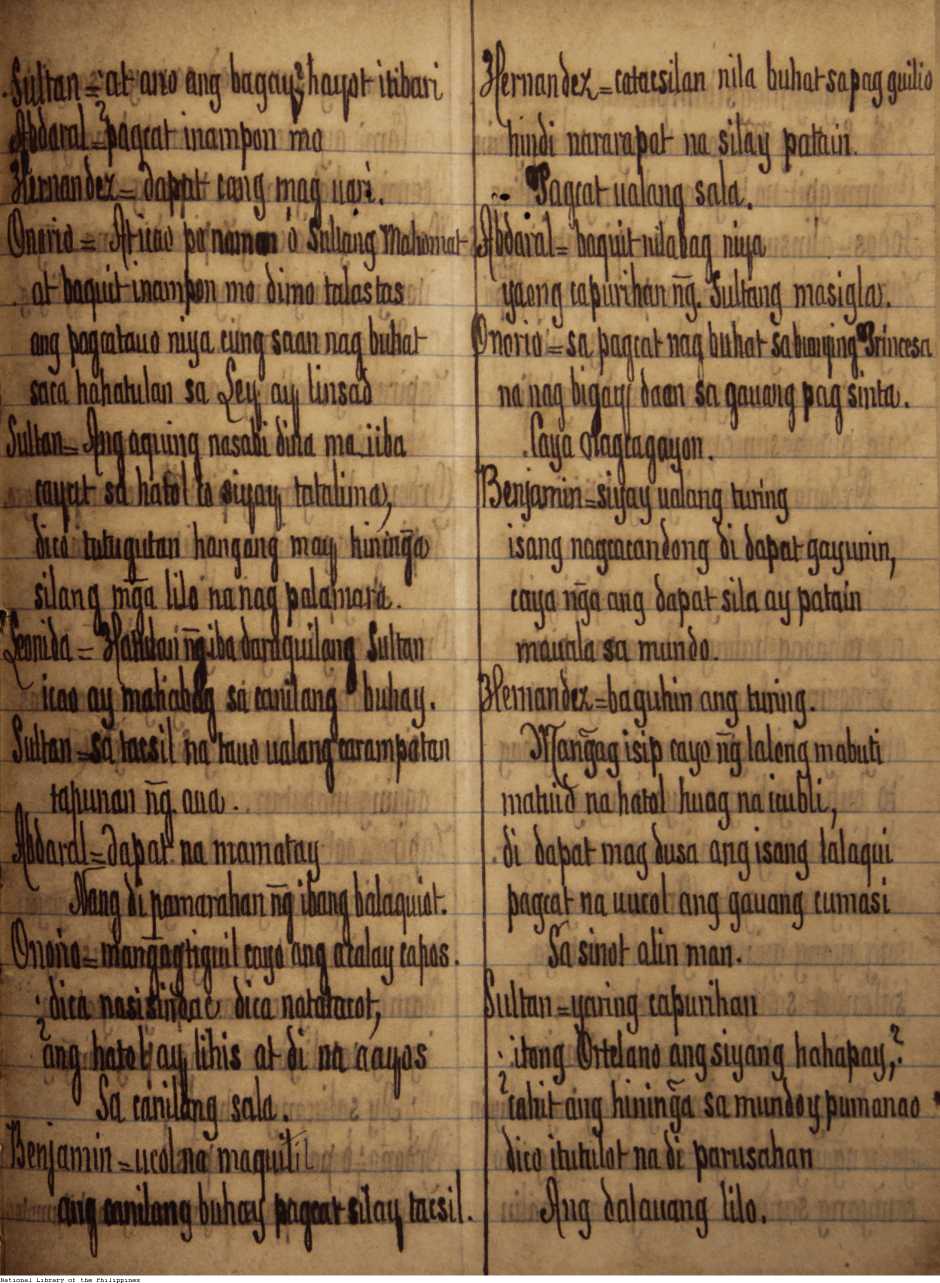 Sultan = at ano ang bagay, hayot itibari
Abdaral = pagcat inampon mo
Hernandez = dapat cang mag uari.
Onorio = Aicao pa naman o Sultang Mahomat
at baquit inampon mo dimo talastas
ang pagcatauo niya cung saan nag buhat
saca hahatulan sa Ley ay linsad
Sultan = Ang aquing nasabi dina ma iiba
cayat sa hatol co siyay tatalima,
dico tutugutan hangang may hininga
silang mg̃a lilo na nag palamara.
Leonida = ng̃ iba daraquilang Sultan
icao ay mahabag sa canilang buhay.
Sultan = sa tacsil na tauo ualang carampatan
tapunan ng̃ aua.
Abdaral = dapat na mamatay
Nang di pamarahan ng̃ ibang balaquiot.
Onorio = mang̃agtiguil cayo ang atalay tapos.
dica nasisindac dica natatacot,
ang hatol ay lihis at di na aayos
Sa canilang sala.
Benjamin = ucol na maquitil
ang canilang buhay pagcat silay tacsil.
Hernandez = catacsilan nila buhat sa pag guilio
hindi nararapat na silay patain.
Pagcat ualang sala.
Abdaral = baquit nilabag niya
yaong capurihan ng̃ Sultang masigla.
Onorio = sa pagcat nag buhat sa buniying Princesa
na nag bigay daan sa gauang pag sinta.
Caya Nagcagayon.
Benjamin = siyay ualang turing
isang nagcacandong di dapat gayunin,
caya ng̃a ang dapat sila ay patain
mauala sa mundo.
Hernandez = baguhin ang turing.
Mang̃ag isip cayo ng̃ lalong mabuti
matuid na hatol huag na icubli,
di dapat mag dusa ang isang lalaqui
pagcat na uucol ang gauang cumasi
Sa sinot alin man.
Sultan = yaring capurihan
itong Ortelano ang siyang hahapay,
cahit ang hining̃a sa mundoy pumanao
dico itutulot na di parusahan
Ang dalauang lilo.
National Library of the Philippines